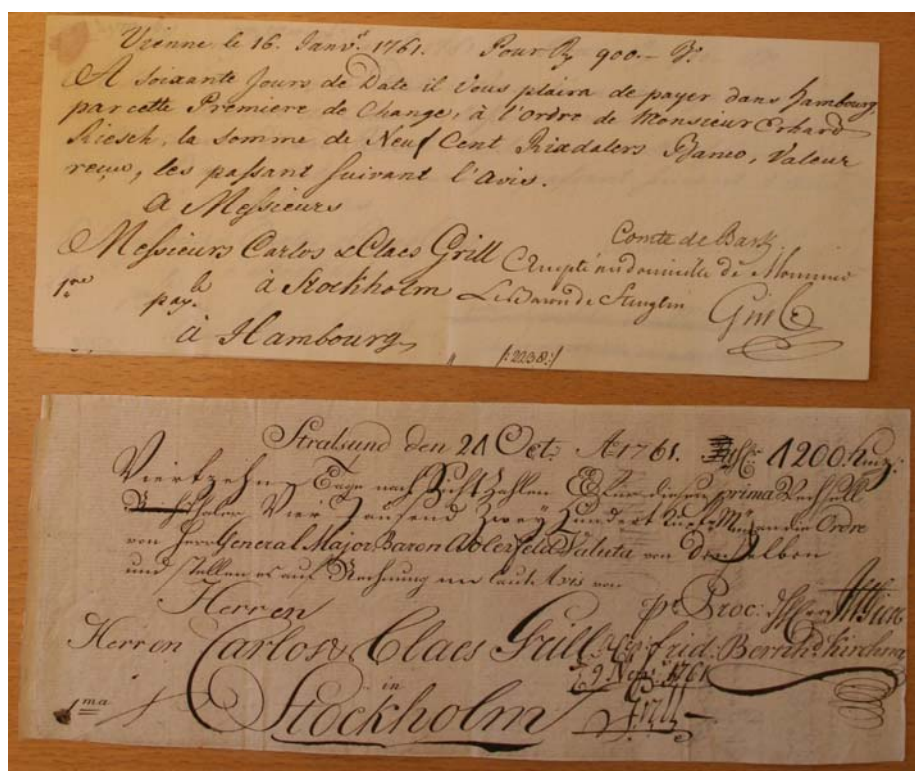 Vienne le 16. Janv.r 1761. Pour R 900.– B.o
A Soixante Jours de Date il Vous plaira de payer dans Hambourg
par cette Premiere de Change, à l'Ordre de Monsieur Erhard
Riesch, la Somme de Neuf Cent Rixdalers Banco, Valeur
reçue, les passant suivant l'avis.
a Messieurs
Comte de Bark
Messieurs Carlos & Claes Grill
à Stockholm
domicile de Monsieur
Le Baron de Stenglin
Grill
1.re
pay.le
à Hambourg
/:2238:/
Stralsund den 21 Oct. A.o 1761. 4200
Viertzehn Tage nach Sicht Zahlen diesen prima Wechsell
Vier Tausend Zwey Hundert Ordre
von Herrn General Major Baron Adlerfeld Valuta von Denselben
und stellen es auf Rechnung laut Avis von
Herren
Herren Carlos & Claes Grill
p.r Proc:
Frid: Bernh.d Kirchner
in
1761
1.ma
Stockholm
Grill